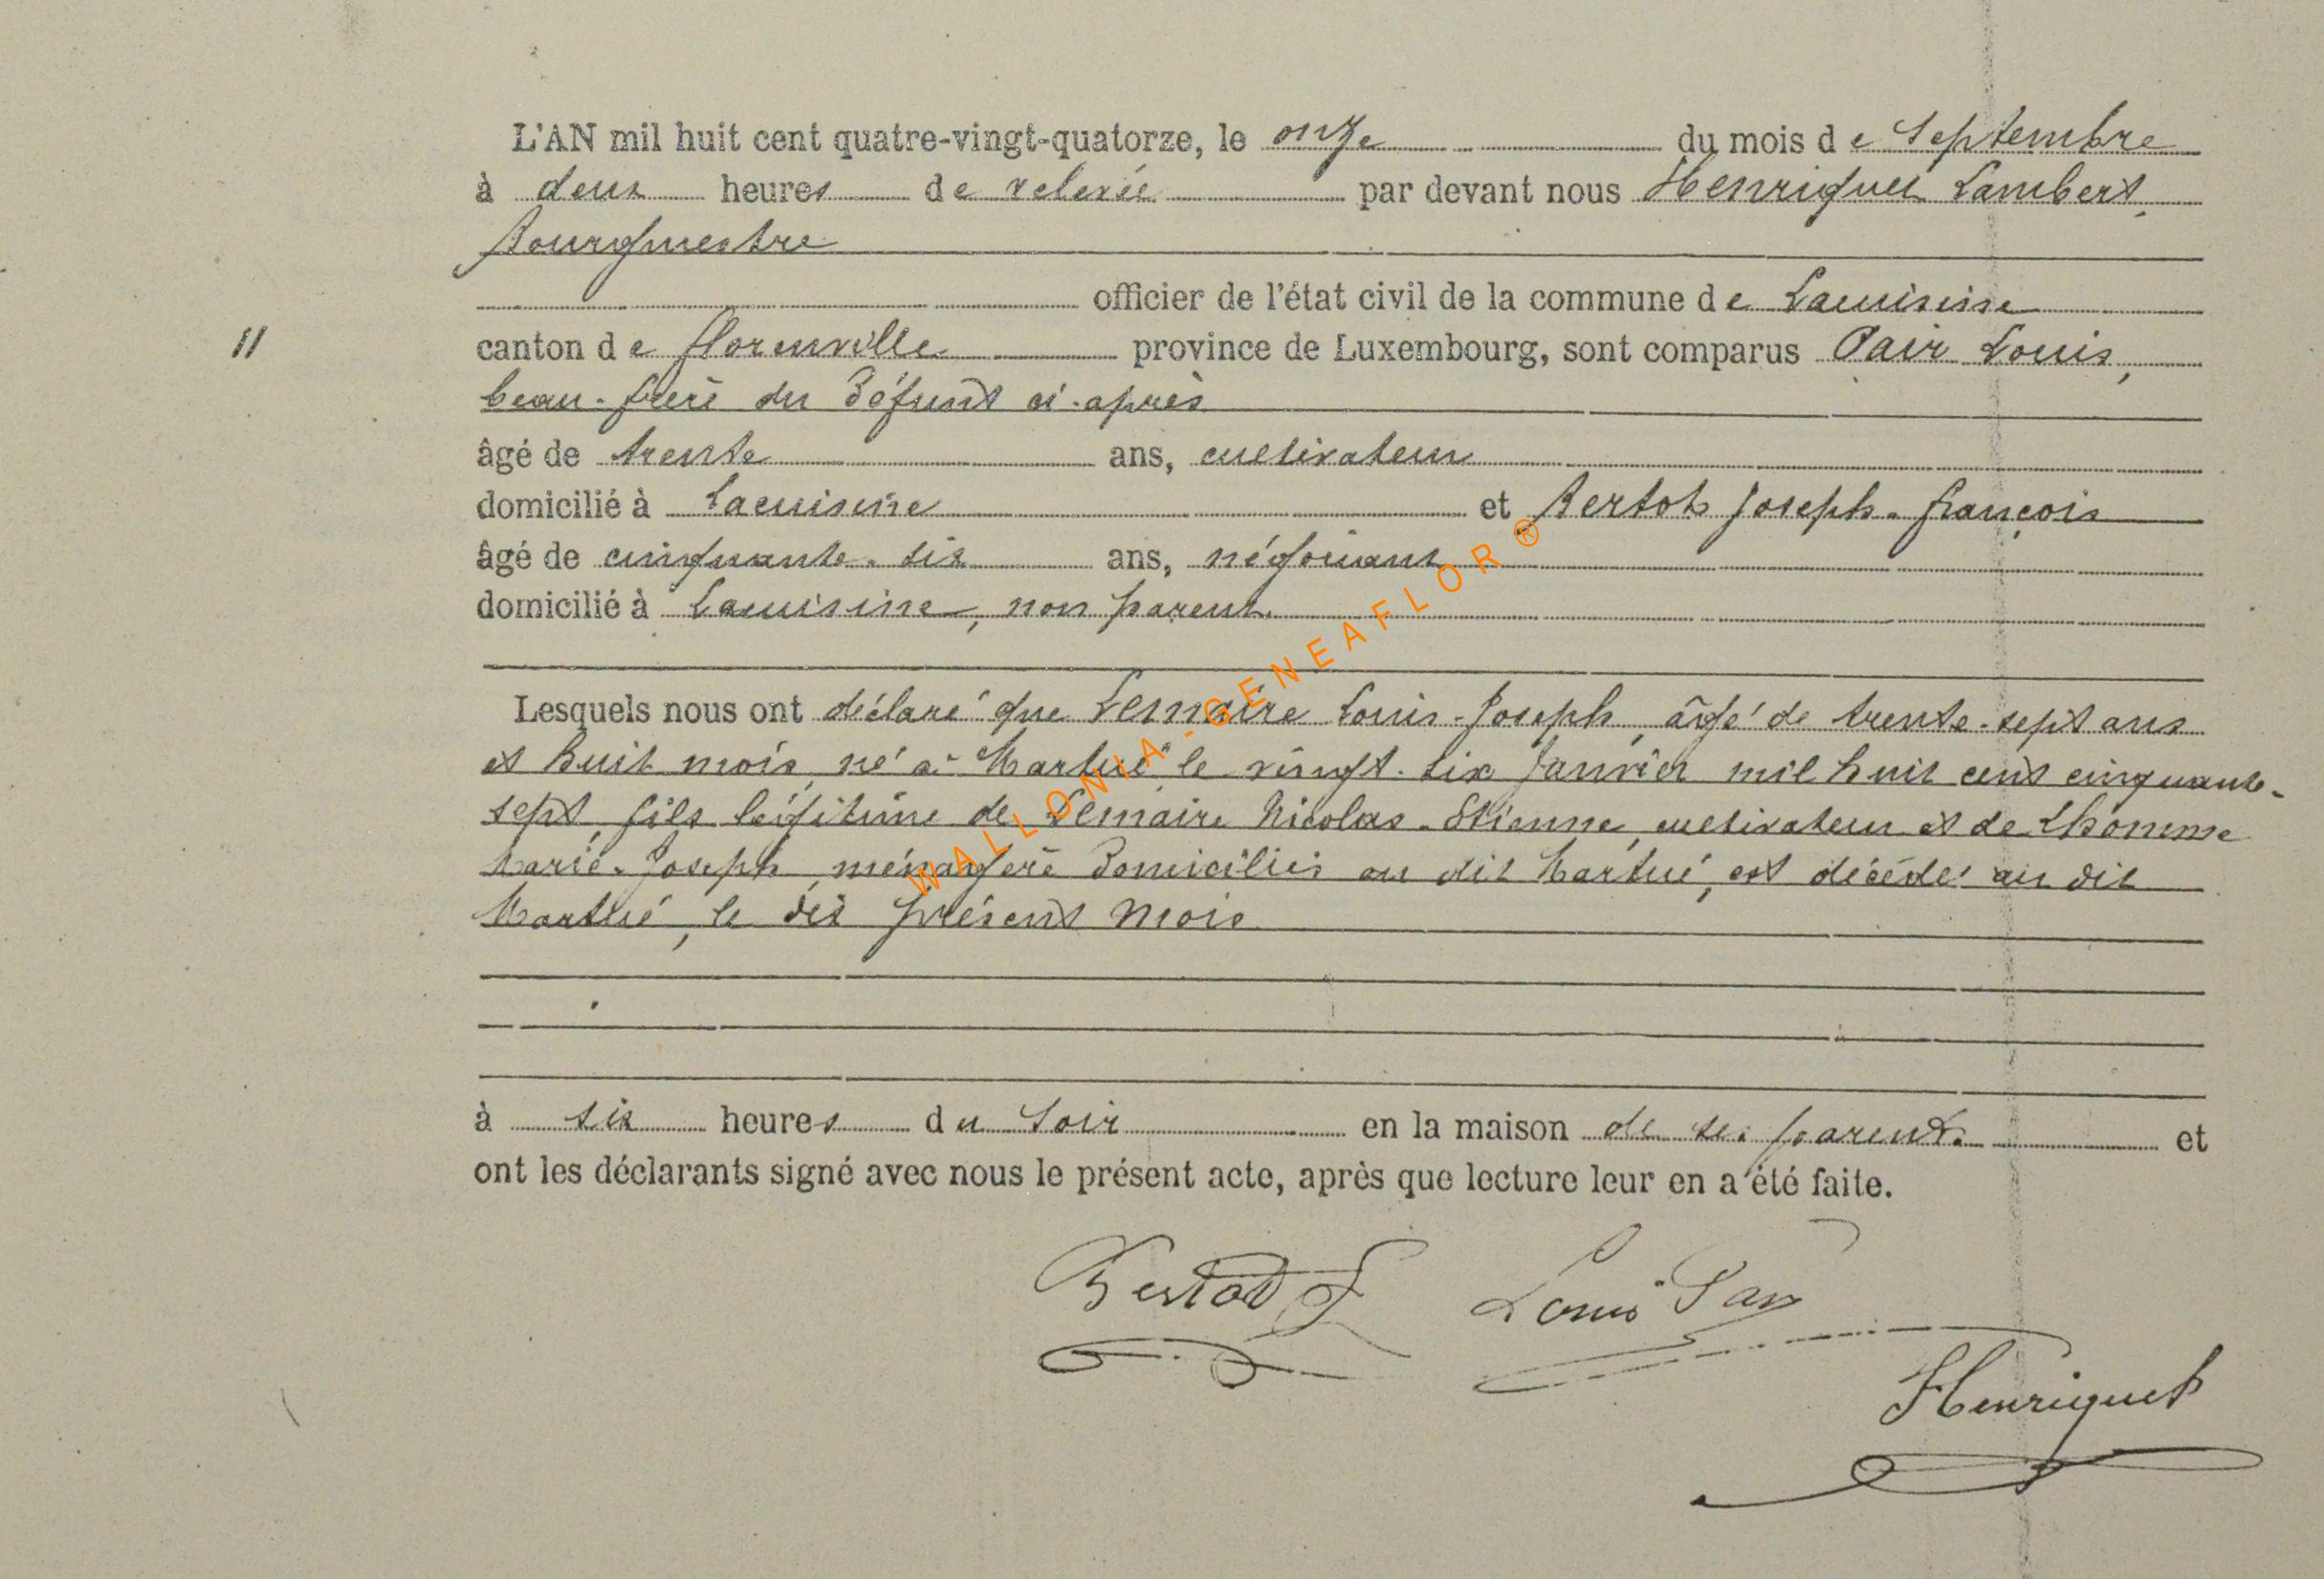 L'AN mil huit cent quatre-vingt-quatorze, le onze du mois de Septembre
à deux heures de relevée par devant nous Henriquet Lambert,
bourgmestre
officier de l'état civil de la commune de Lacuisine
11
canton de florenville province de Luxembourg, sont comparus Pair Louis,
beau-frère du défunt ci-après
âgé de trente ans, cultivateur
domicilié à Lacuisine et Bertot Joseph-françois
âgé de cinquante-six ans, négociant
domicilié à Lacuisine, non parent.
Lesquels nous ont déclaré que Lemaire Louis-Joseph, âgé de trente-sept ans
et huit mois, né à Martué le vingt-six Janvier mil huit cent cinquante-
sept, fils légitime de Lemaire Nicolas-Etienne, cultivateur et de Lhomme
Marie-Joseph, ménagère domiciliés au dit Martué, est décédé au dit
Martué, le dix présent mois
à six heures du Soir en la maison de ses parents et
ont les déclarants signé avec nous le présent acte, après que lecture leur en a été faite.
Bertot J Louis Pair
Henriquet
WALLONIA-GENEAFLOR®